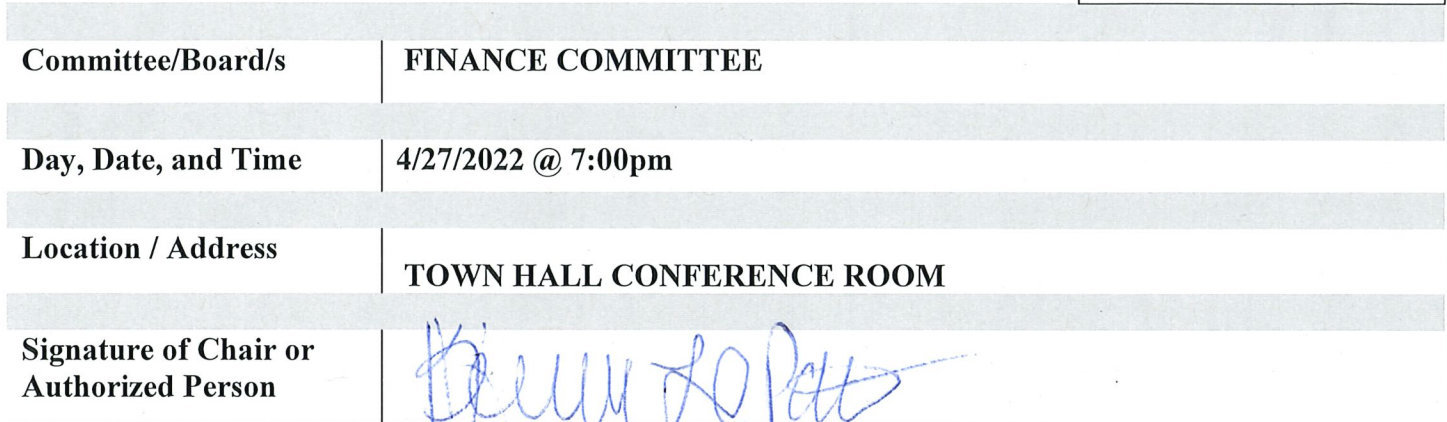 Committee/Board/s FINANCE COMMITTEE
Day, Date, and Time 4/27/2022 @ 7:00pm
Location / Address
TOWN HALL CONFERENCE ROOM
Signature of Chair or
Authorized Person